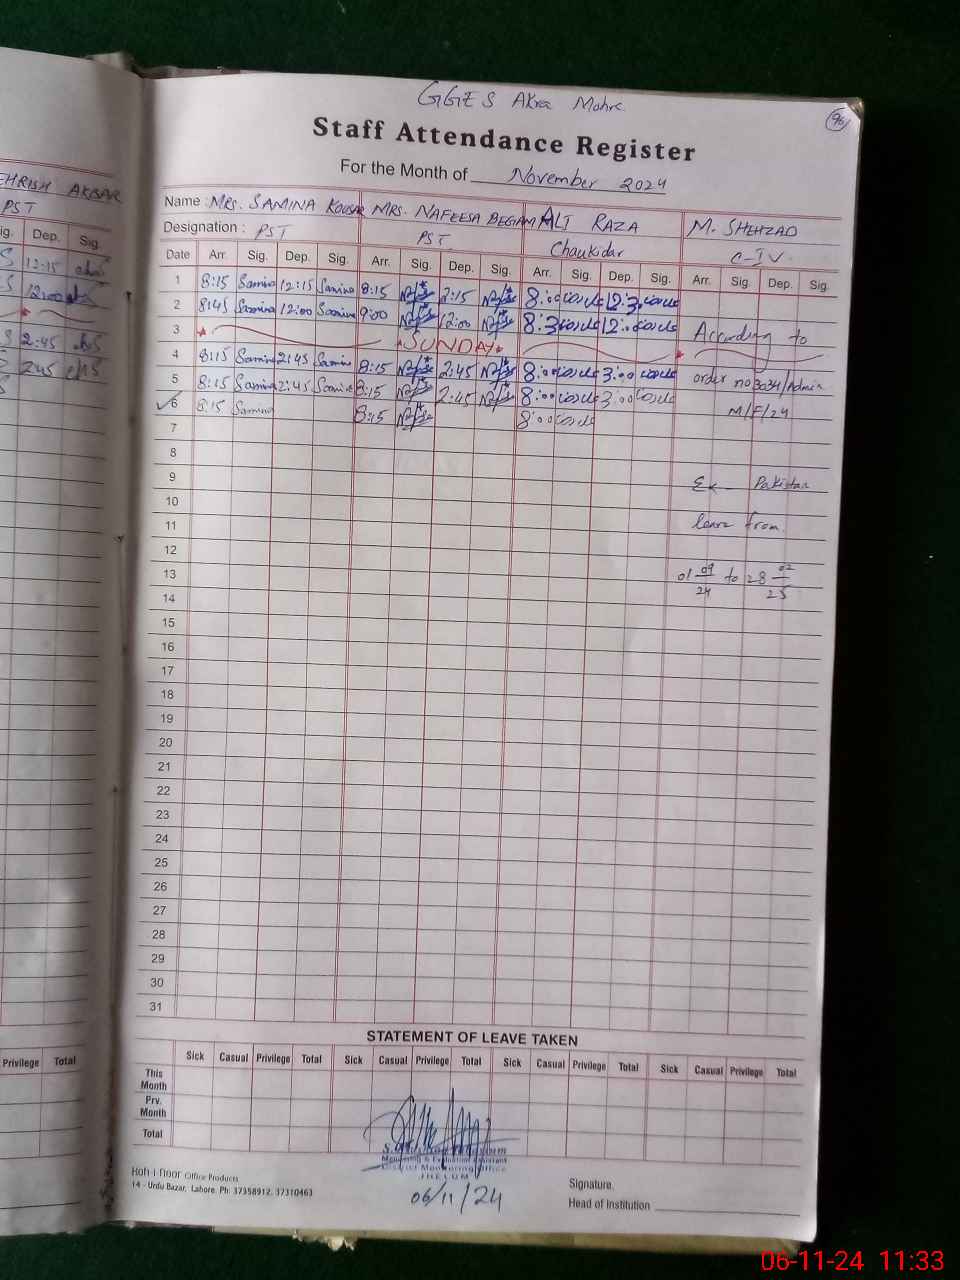 GGES Akra Mohra
96
Staff Attendance Register
For the Month of November 2024
EHRISH AKBAR
PST
Sig. Dep. Sig.
12:15
12:00
2:45
2:45
Privilege Total
Name : MRS. SAMINA KOUSAR MRS. NAFEESA BEGIAM ALI RAZA M. SHEHZAD
Designation : PST PST Chaukidar C-IV
Date Arr. Sig. Dep. Sig. Arr. Sig. Dep. Sig. Arr. Sig. Dep. Sig. Arr. Sig. Dep. Sig.
1 8:15 Samina 12:15 Samina 8:15 2:15 8:00 12:3
2 8:45 Samina 12:00 Samina 9:00 12:00 8:3 12:00 According to
3 SUNDAY
4 8:15 Samina 2:45 Samina 8:15 2:45 8:00 3:00 order no 3034/Admin
5 8:15 Samina 2:45 Samina 8:15 2:45 8:00 3:00 M/F/24
6 8:15 Samina 8:15 8:00
7
8
9 Ex- Pakistan
10
11 leave from
12
13 01 09/24 to 28 02/25
14
15
16
17
18
19
20
21
22
23
24
25
26
27
28
29
30
31
STATEMENT OF LEAVE TAKEN
Sick Casual Privilege Total Sick Casual Privilege Total Sick Casual Privilege Total Sick Casual Privilege Total
This Month
Prv. Month
Total
Monitoring & Evaluation Assistant
District Monitoring Office
JHELUM
06/11/24
Koh-i-Noor Office Products
14 - Urdu Bazar, Lahore. Ph: 37358912. 37310463
Signature.
Head of Institution
06-11-24 11:33